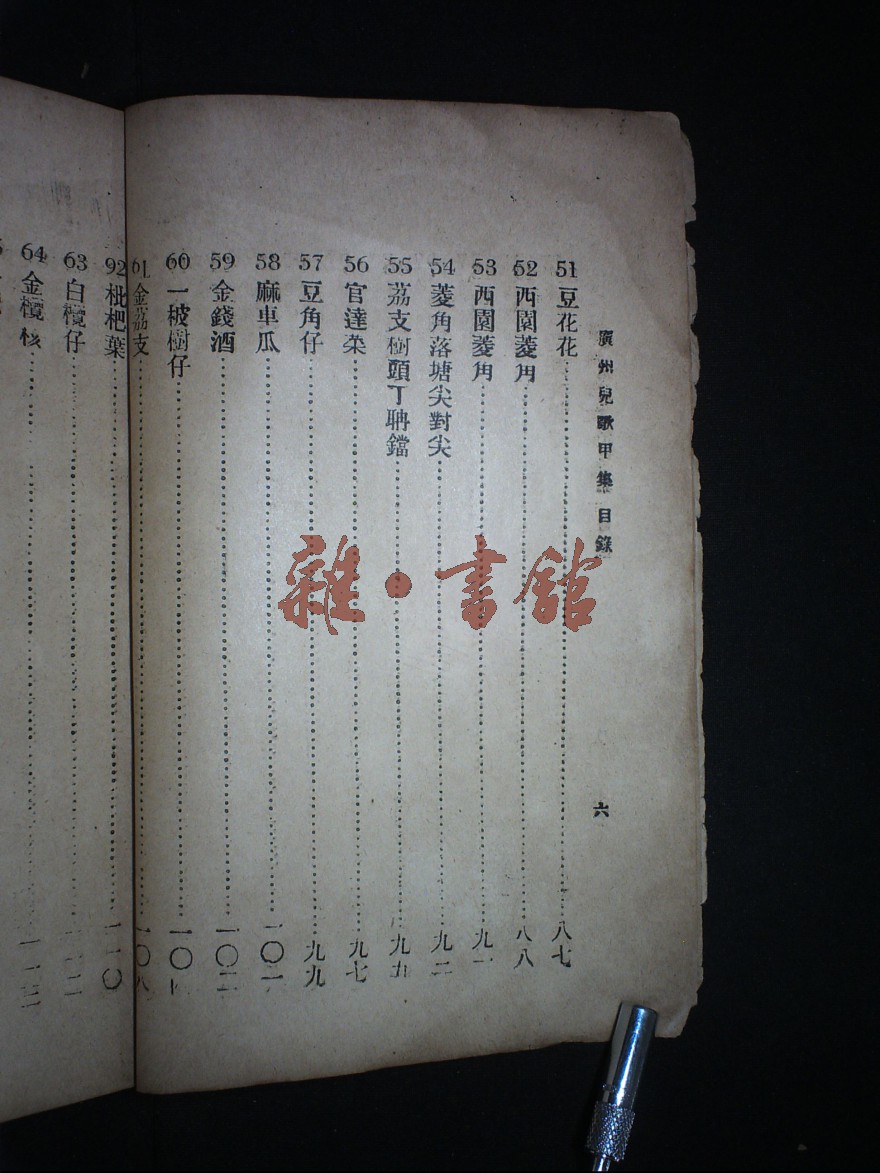 廣州兒歌甲集 目錄 六
51 豆花花……八七
52 西園菱角……八八
53 西園菱角……九一
54 菱角落塘尖對尖……九二
55 荔支樹頭丁聃鐺……九五
56 官達菜……九七
57 豆角仔……九九
58 麻車瓜……一〇一
59 金錢酒……一〇二
60 一椄樹仔……一〇
61 金荔支……一〇八
92 枇杷葉……一一〇
63 白欖仔……一一二
64 金欖核……一一三
雜·書館